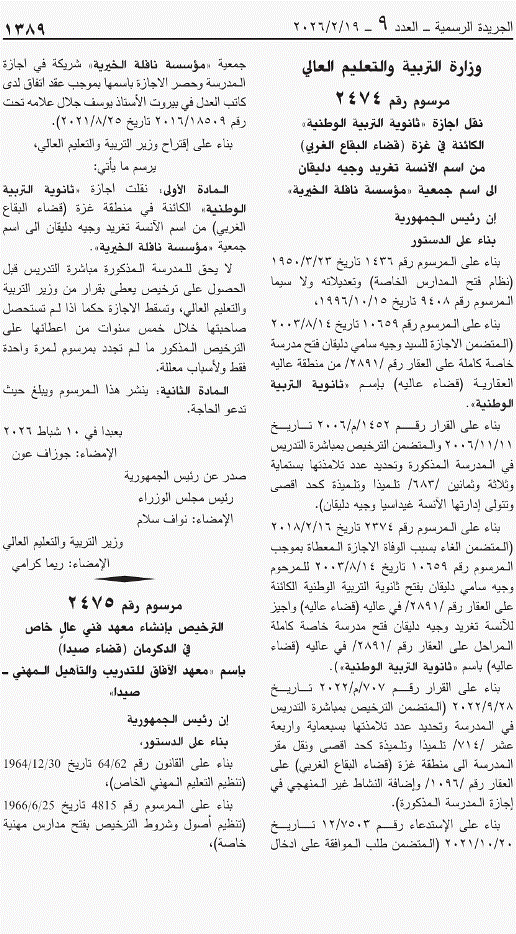 الجريدة الرسمية ــ العدد ٩ ــ ٢٠٢٦/٢/١٩
١٣٨٩
وزارة التربية والتعليم العالي
مرسوم رقم ٢٤٧٤
نقل اجازة «ثانوية التربية الوطنية»
الكائنة في غزة (قضاء البقاع الغربي)
من اسم الآنسة تغريد وجيه دليقان
الى اسم جمعية «مؤسسة نافلة الخيرية»
إن رئيس الجمهورية
بناء على الدستور
بناء على المرسوم رقم ١٤٣٦ تاريخ ١٩٥٠/٣/٢٣
(نظام فتح المدارس الخاصة) وتعديلاته ولا سيما
المرسوم رقم ٩٤٠٨ تاريخ ١٩٩٦/١٠/١٥،
بناء على المرسوم رقم ١٠٦٥٩ تاريخ ٢٠٠٣/٨/١٤
(المتضمن الاجازة للسيد وجيه سامي دليقان فتح مدرسة
خاصة كاملة على العقار رقم /٢٨٩١/ من منطقة عاليه
العقارية (قضاء عاليه) بإسم «ثانوية التربية
الوطنية».
بناء على القرار رقـــم ١٤٥٢/م/٢٠٠٦ تـاريــخ
٢٠٠٦/١١/١١ والمتضمن الترخيص بمباشرة التدريس
في المدرسة المذكورة وتحديد عدد تلامذتها بستماية
وثلاثة وثمانين /٦٨٣/ تلميذا وتلميذة كحد اقصى
وتتولى إدارتها الآنسة غيداسيا وجيه دليقان).
بناء على المرسوم رقم ٢٣٧٤ تاريخ ٢٠١٨/٢/١٦
(المتضمن الغاء بسبب الوفاة الاجازة المعطاة بموجب
المرسوم رقم ١٠٦٥٩ تاريخ ٢٠٠٣/٨/١٤ للمرحوم
وجيه سامي دليقان بفتح ثانوية التربية الوطنية الكائنة
على العقار رقم /٢٨٩١/ في عاليه (قضاء عاليه) واجيز
للآنسة تغريد وجيه دليقان فتح مدرسة خاصة كاملة
المراحل على العقار رقم /٢٨٩١/ في عاليه (قضاء
عاليه) باسم «ثانوية التربية الوطنية»).
بناء على القرار رقـــم ٧٠٧/م/٢٠٢٢ تـاريــخ
٢٠٢٢/٩/٢٨ (المتضمن الترخيص بمباشرة التدريس
في المدرسة وتحديد عدد تلامذتها بسبعماية واربعة
عشر /٧١٤/ تلميذا وتلميذة كحد اقصى ونقل مقر
المدرسة الى منطقة غزة (قضاء البقاع الغربي) على
العقار رقم /١٠٩٦/ وإضافة النشاط غير المنهجي في
إجازة المدرسة المذكورة).
بناء على الإستدعاء رقـــم ١٢/٧٥٠٣ تــاريــخ
٢٠٢١/١٠/٢٠ (المتضمن طلب الموافقة على ادخال
جمعية «مؤسسة نافلة الخيرية» شريكة في اجازة
المدرسة وحصر الاجازة باسمها بموجب عقد اتفاق لدى
كاتب العدل في بيروت الأستاذ يوسف جلال علامه تحت
رقم ٢٠١٦/١٨٥٠٩ تاريخ ٢٠٢١/٨/٢٥).
بناء على إقتراح وزير التربية والتعليم العالي،
يرسم ما يأتي:
المادة الأولى: نقلت اجازة «ثانوية التربية
الوطنية» الكائنة في منطقة غزة (قضاء البقاع
الغربي) من اسم الآنسة تغريد وجيه دليقان الى اسم
جمعية «مؤسسة نافلة الخيرية».
لا يحق للمدرسة المذكورة مباشرة التدريس قبل
الحصول على ترخيص يعطى بقرار من وزير التربية
والتعليم العالي، وتسقط الاجازة حكما اذا لم تستحصل
صاحبتها خلال خمس سنوات من اعطائها على
الترخيص المذكور ما لم تجدد بمرسوم لمرة واحدة
فقط ولأسباب معللة.
المادة الثانية: ينشر هذا المرسوم ويبلغ حيث
تدعو الحاجة.
بعبدا في ١٠ شباط ٢٠٢٦
الإمضاء: جوزاف عون
صدر عن رئيس الجمهورية
رئيس مجلس الوزراء
الإمضاء: نواف سلام
وزير التربية والتعليم العالي
الإمضاء: ريما كرامي
مرسوم رقم ٢٤٧٥
الترخيص بإنشاء معهد فني عالٍ خاص
في الدكرمان (قضاء صيدا)
بإسم «معهد الآفاق للتدريب والتاهيل المهني ــ
صيدا»
إن رئيس الجمهورية
بناء على الدستور،
بناء على القانون رقم 64/62 تاريخ 1964/12/30
(تنظيم التعليم المهني الخاص)،
بناء على المرسوم رقم 4815 تاريخ 1966/6/25
(تنظيم أصول وشروط الترخيص بفتح مدارس مهنية
خاصة)،